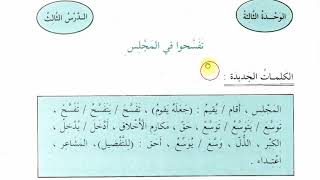 الوَحْدَةُ الثّالثَةُ
الـدَّرْسُ الثّالثُ
تَفَسَّحوا في المَجْلس
الكلمـاتُ الجَديدة :
المَجْلس ، أقام / يُقيمُ : (جَعَلَهُ يَقومُ) ، تَفَسَّحَ / يَتَفَسَّحُ / تَفَسُّح ،
تَوَسَّعَ / يَتَوَسَّعُ / تَوَسُّع ، حَقّ ، مكارم الأخْلاق ، أدْخَلَ / يُدْخلُ ،
الكبْر ، الذُّلّ ، وَسَّعَ / يُوَسِّعُ ، أحَق : (للتَّفْضيل) ، المَشاعر ،
اعْتداء .